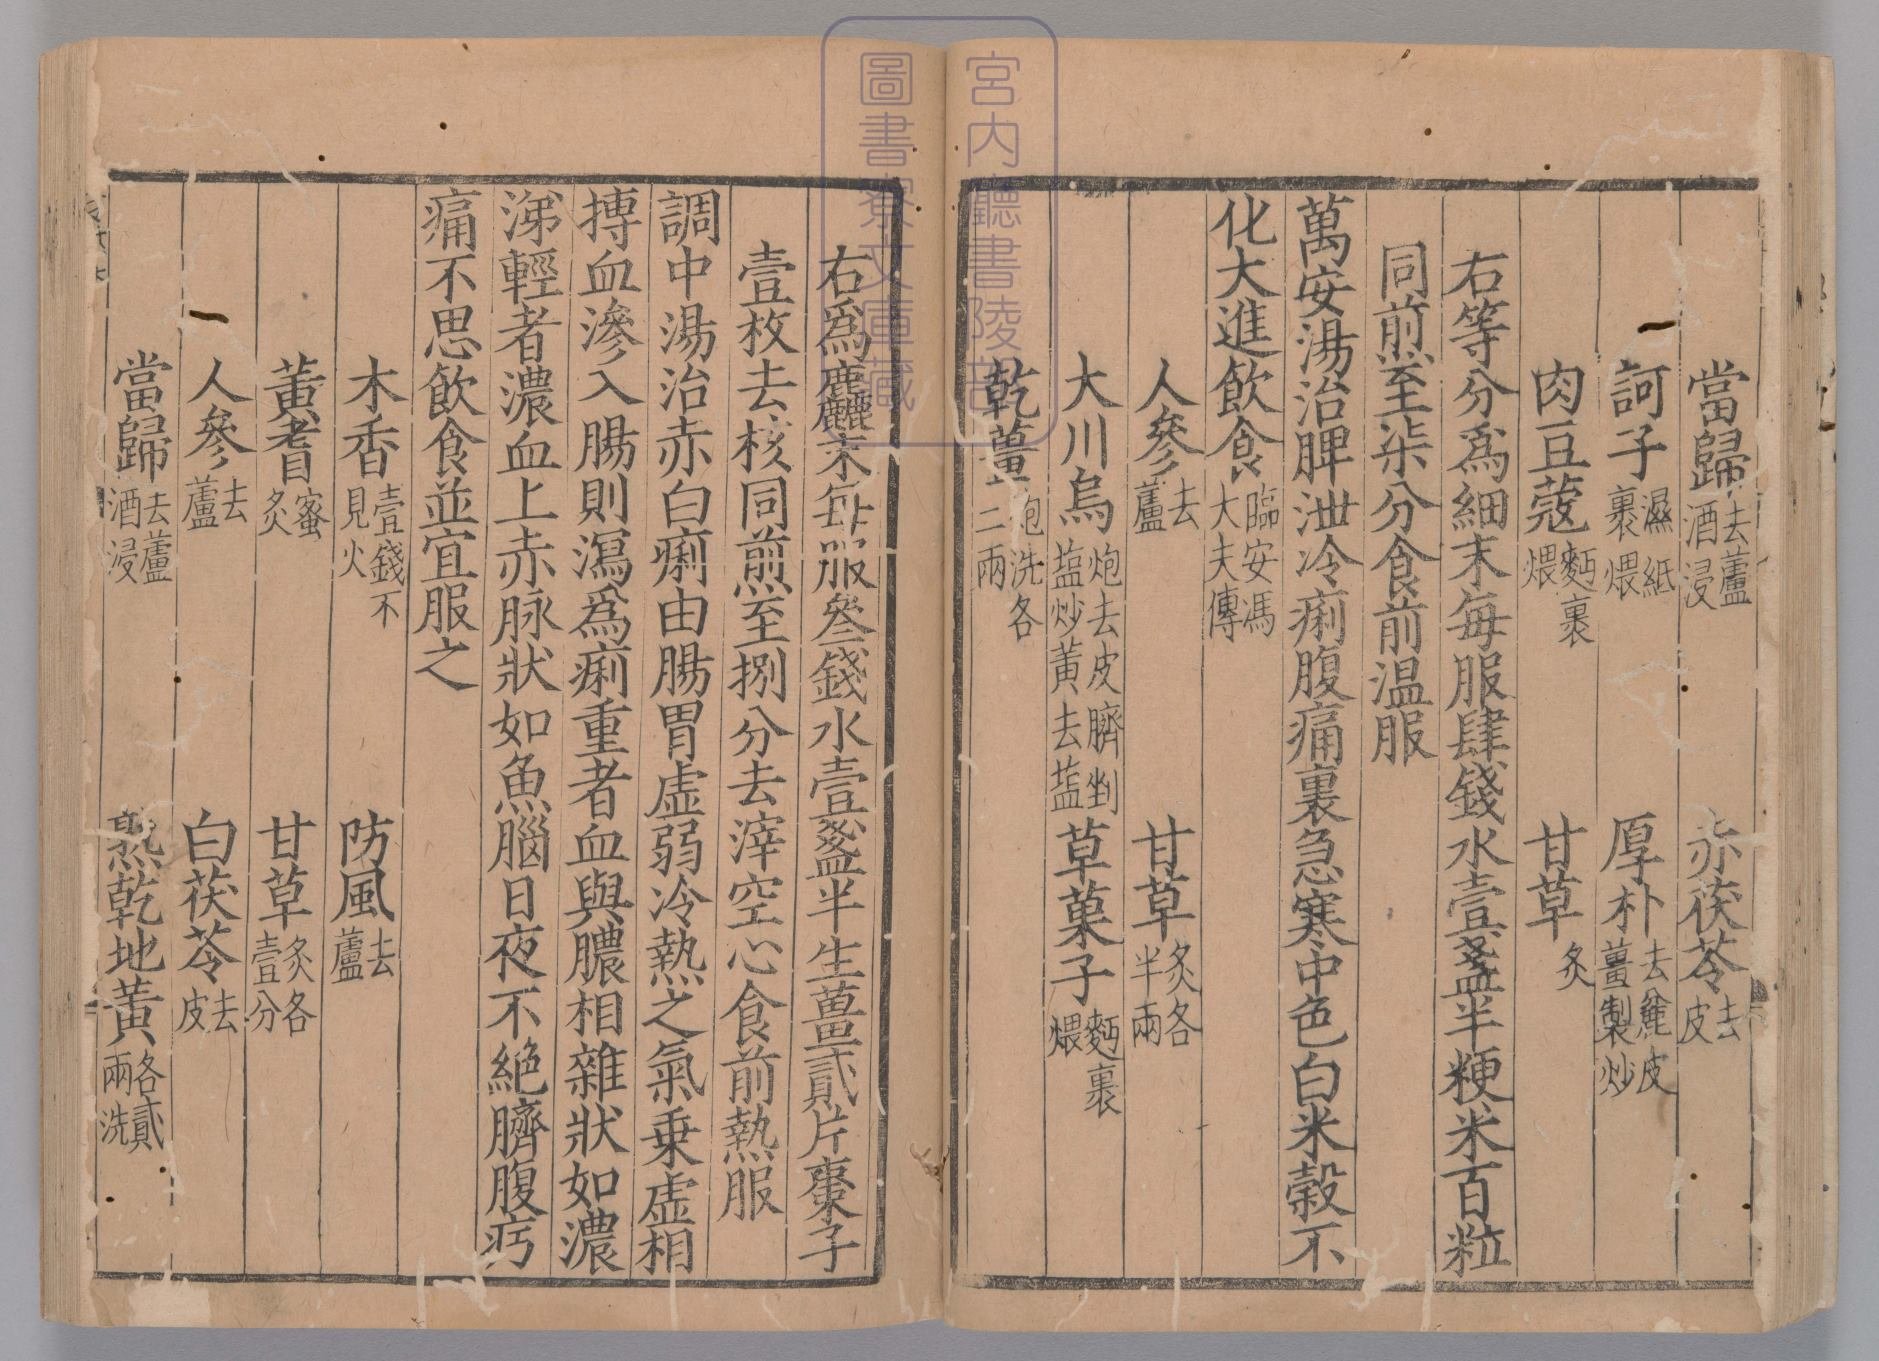 當歸去蘆酒浸　赤茯苓去皮
訶子濕紙裹煨　厚朴去麄皮薑製炒
肉豆蔻麪裹煨　甘草炙
右等分爲細末每服肆錢水壹盞半粳米百粒
同煎至柒分食前温服
萬安湯治脾泄冷痢腹痛裏急寒中色白米穀不
化大進飲食臨安馮大夫傳
人參去蘆　甘草炙各半兩
大川烏炮去皮臍剉塩炒黃去塩　草菓子麪裹煨
乾薑炮洗各二兩
右爲麤末每服叄錢水壹盞半生薑貳片棗子
壹枚去核同煎至捌分去滓空心食前熱服
調中湯治赤白痢由腸胃虛弱冷熱之氣乗虛相
搏血滲入腸則瀉爲痢重者血與膿相雜狀如濃
涕輕者濃血上赤脉狀如魚腦日夜不絕臍腹㽲
痛不思飲食並宜服之
木香壹錢不見火　防風去蘆
黃耆蜜炙　甘草炙各壹分
人參去蘆　白茯苓去皮
當歸去蘆酒浸　熟乾地黃各貳兩洗
宮内廳書陵部
圖書寮文庫藏